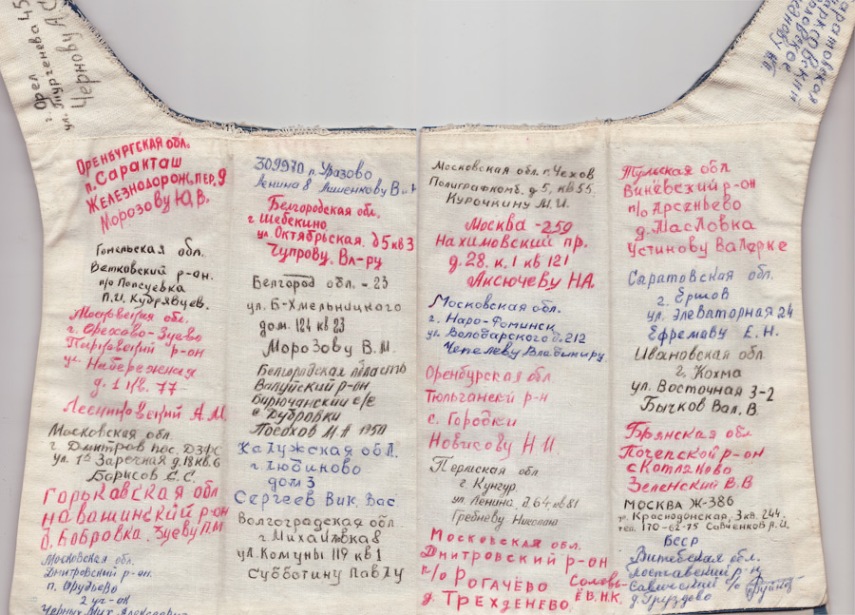 г. Орел
ул. Тургенева 45
Чернову
Оренбургская обл.
п. Саракташ
Железнодорож. пер. 9
Морозову Ю.В.
Гомельская обл.
Ветковский р-он.
п/о Попсуевка
П.И. Кудрявцев.
Московская обл.
г. Орехово-Зуево
р-он
ул. Набережная
д. 1 кв. 77
А.М.
Московская обл.
г Дмитров пос. ДЗФС
ул. 1я Заречная д.18 кв.6
Борисов С.С.
Горьковская обл
навашинский р-он
д. Бобровка. Зуеву П.М
Московская обл.
Дмитровский р-он.
п. Орудьево
2 уч-ок
Черных Мих. Александр
309970 п. Уразово
Ленина 8 Лишенкову В.
Белгородская обл.
г Шебекино
ул. Октябрьская. д5 кв3
Чупрову. Вл-ру
Белгород обл. - 23
ул. Б-Хмельницкого
дом. 124 кв 23
Морозову В.М.
Белгородская область
Валуйский р-он
Бирючанский с/с
с Дубровки
Посохов М.А 1950
Калужская обл.
г Людиново
дом 3
Сергеев Вик. Вас
Волгоградская обл
г Михайловка
ул. Комуны 119 кв 1
Субботину Павлу
Московская обл. г. Чехов
Полиграфкомб. д 5, кв 55.
Курочкину М.И.
Москва - 259
Нахимовский пр.
д. 28. к. 1 кв 121
Аксючеву НА.
Московская обл.
г. Наро-Фоминск
ул. Володарского д. 212
Чепелеву Владимиру
Оренбургская обл
Тюльганский р-н
с. Городки
Новикову Н И
Пермская обл
г Кунгур
ул Ленина д. 64 кв 81
Гредневу Николаю
Московская обл.
Дмитровский р-он
п/о Рогачёво
д. Трехденево.
Соловь-
ёв. Н.К.
Тульская обл
Виневский р-он
п/о Арсеньево
д. Масловка
Устинову Валерке
Саратовская обл.
г. Ершов
ул. Элеваторная 24
Ефремову Е. Н.
Ивановская обл
г. Кохма
ул. Восточная 3-2
Бычков Вал. В.
Брянская обл
Почепской р-он
с Котляково
Зеленский В.В
МОСКВА Ж-386
ул. Краснодонская, 3 кв. 244.
тел. 170-62-75 Савченков А.И.
БССР
Витебская обл.
Поставский р-н
Савичский с/с
д. Груздово